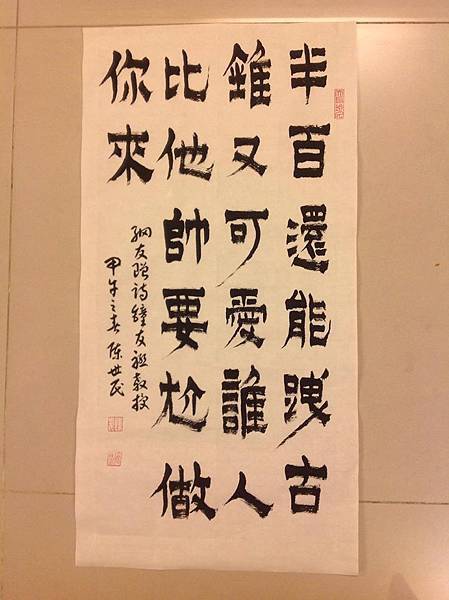 半百還能跩古
錐又可愛誰人
比他帥要尬做
你來
網友贈詩鐘友聯教授
甲午之春陈世民